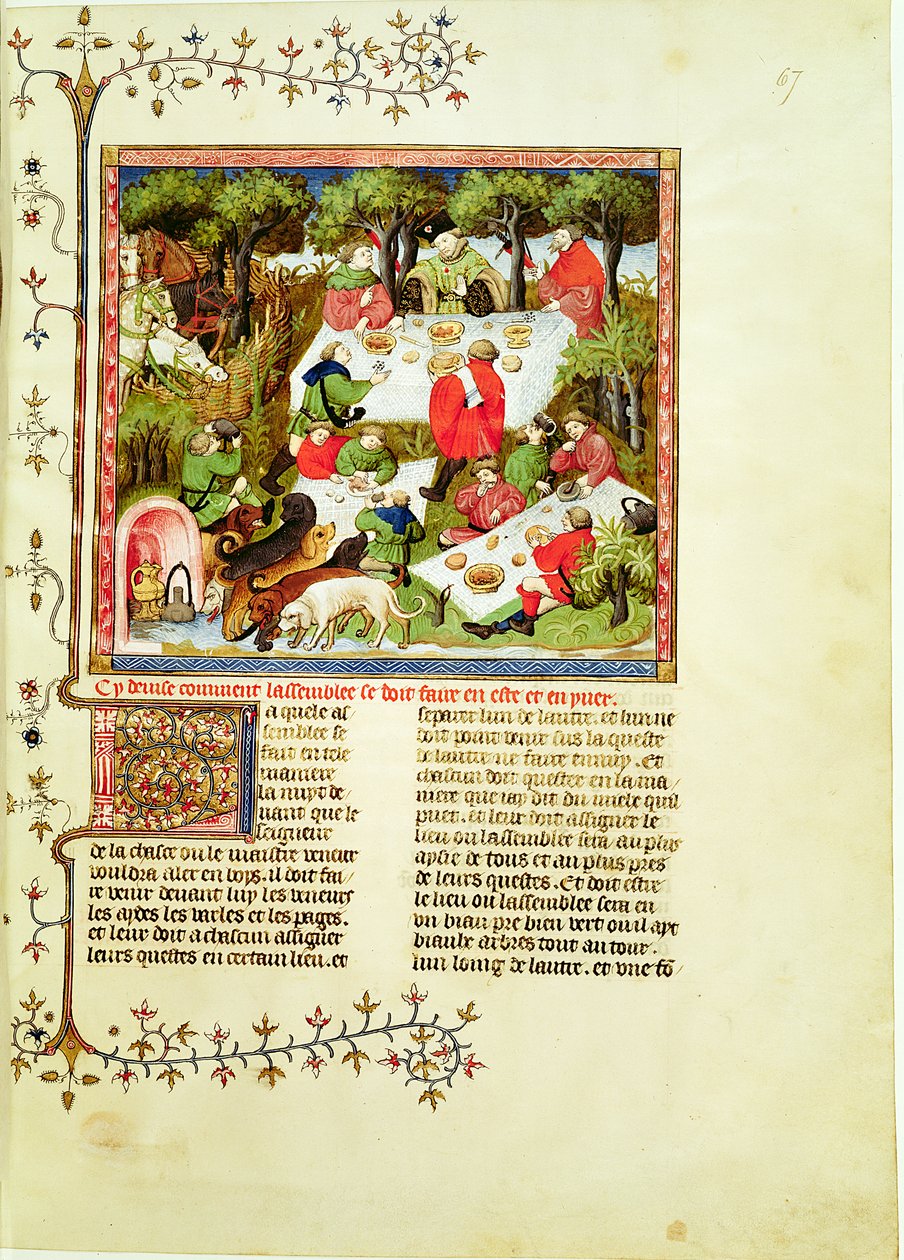 67
Cy deuise comment lassemblee se doit faire en este et en yuer.
a quele as
semblee se
fait en tele
maniere
la nuyt de
uant que le
seigneur
de la chasce ou le maistre veneur
vouldra aler en boys. il doit fai
re venir deuant luy les veneurs
les aydes les varles et les pages.
et leur doit a chascun assigner
leurs questes en certain lieu. et
separer lun de lautre. et lun ne
doit point venir sus la queste
de lautre ne faire ennuy. Et
chascun doit quester en la ma
niere que iay dit du mielx quil
puet. et leur doit assigner le
lieu ou lassemblee sera au plus
aysie de tous et au plus pres
de leurs questes. Et doit estre
le lieu ou lassemblee sera en
vn biau pre bien vert ou il ayt
biaulx arbres tout au tour.
lun loing de lautre. et vne fo